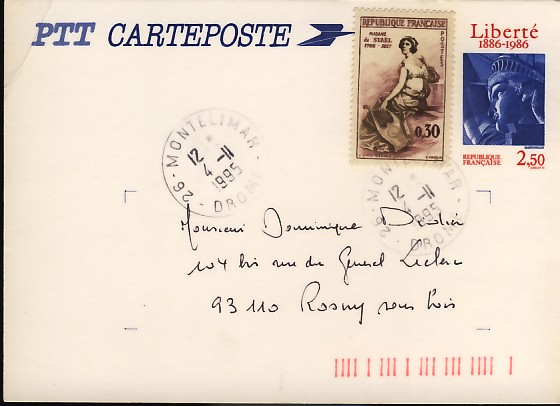 PTT CARTEPOSTE
RÉPUBLIQUE FRANÇAISE
MADAME
de STAËL
1766 - 1817
POSTES
0,30
Liberté
1886-1986
RÉPUBLIQUE
FRANÇAISE
2,50
26 - MONTELIMAR -
12 *
4 -11
1995
DROME
26 - MONTELIMAR -
12
4 -11
1995
DROME
Monsieur Dominique
104 bis rue du General Leclerc
93110 Rosny sous bois